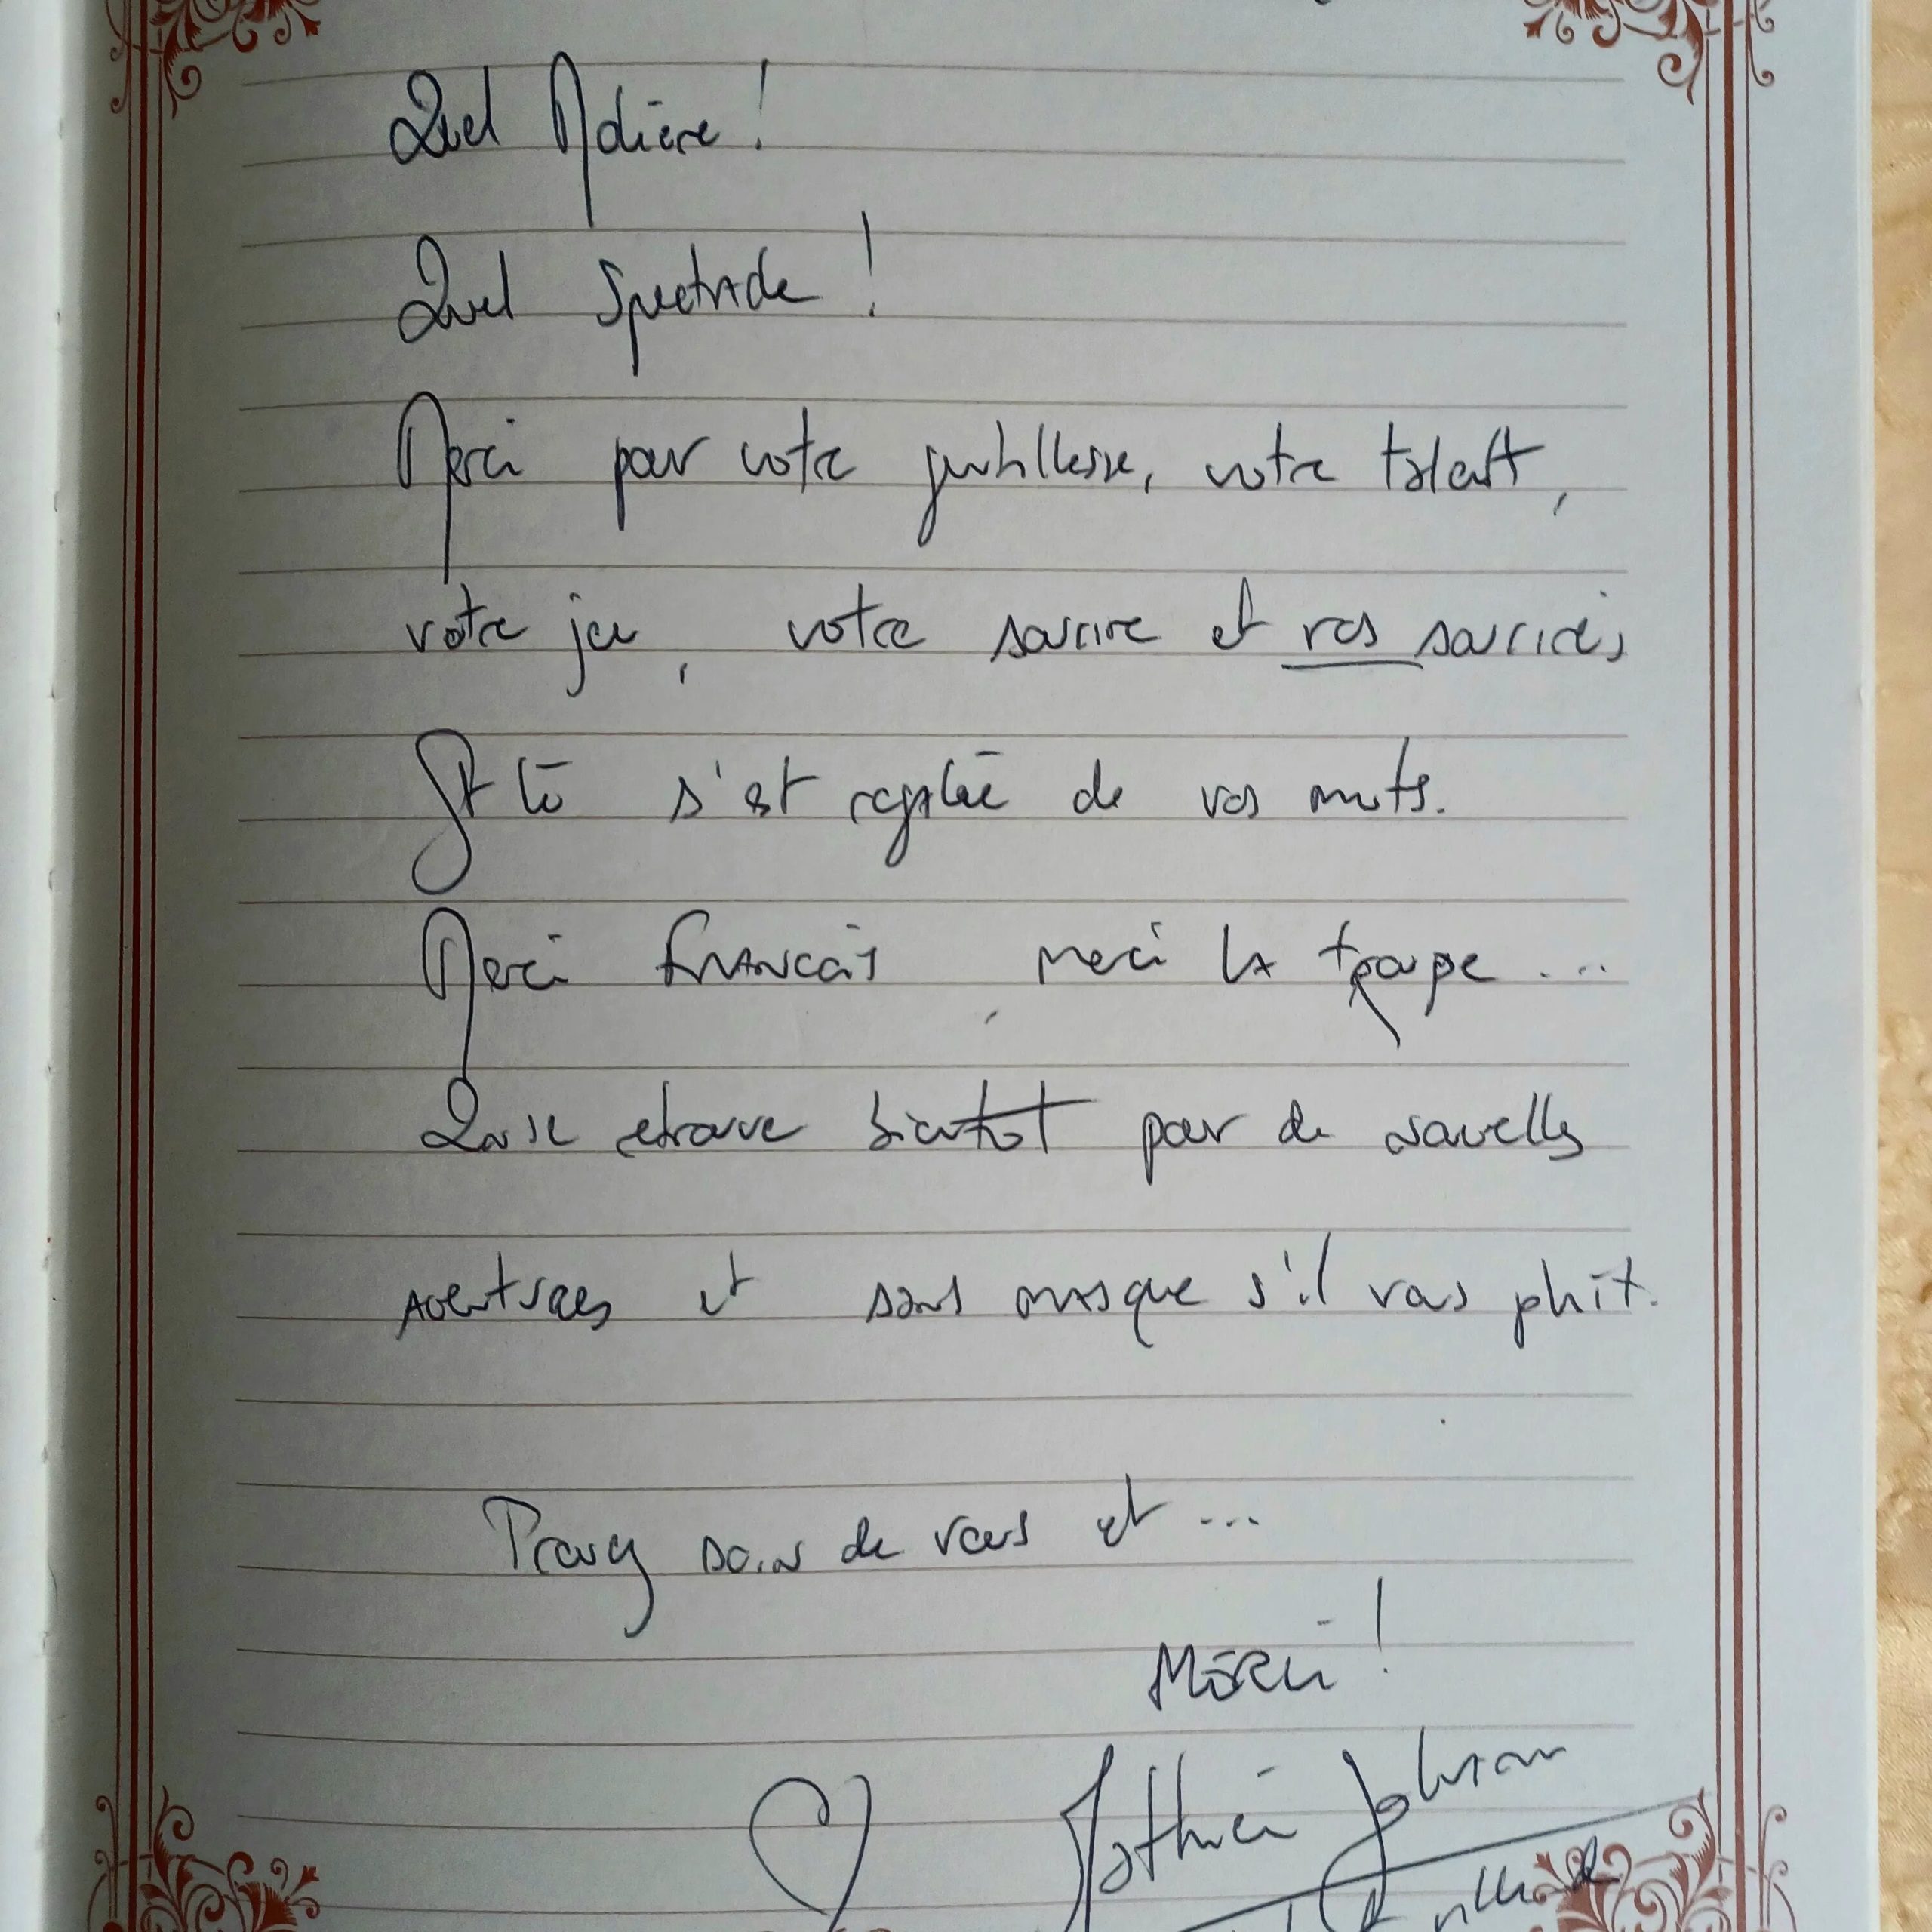 Quel Molière !
Quel spectacle !
Merci pour votre gentillesse, votre talent,
votre jeu, votre sourire et vos sourires,
St Lô s'est régalée de vos mots.
Merci Francois, merci la troupe ...
Qu'on se retrouve bientot pour de nouvelles
aventures et sans masque s'il vous plaît.
Prenez soin de vous et ...
MERCI !
Mathieu Johann